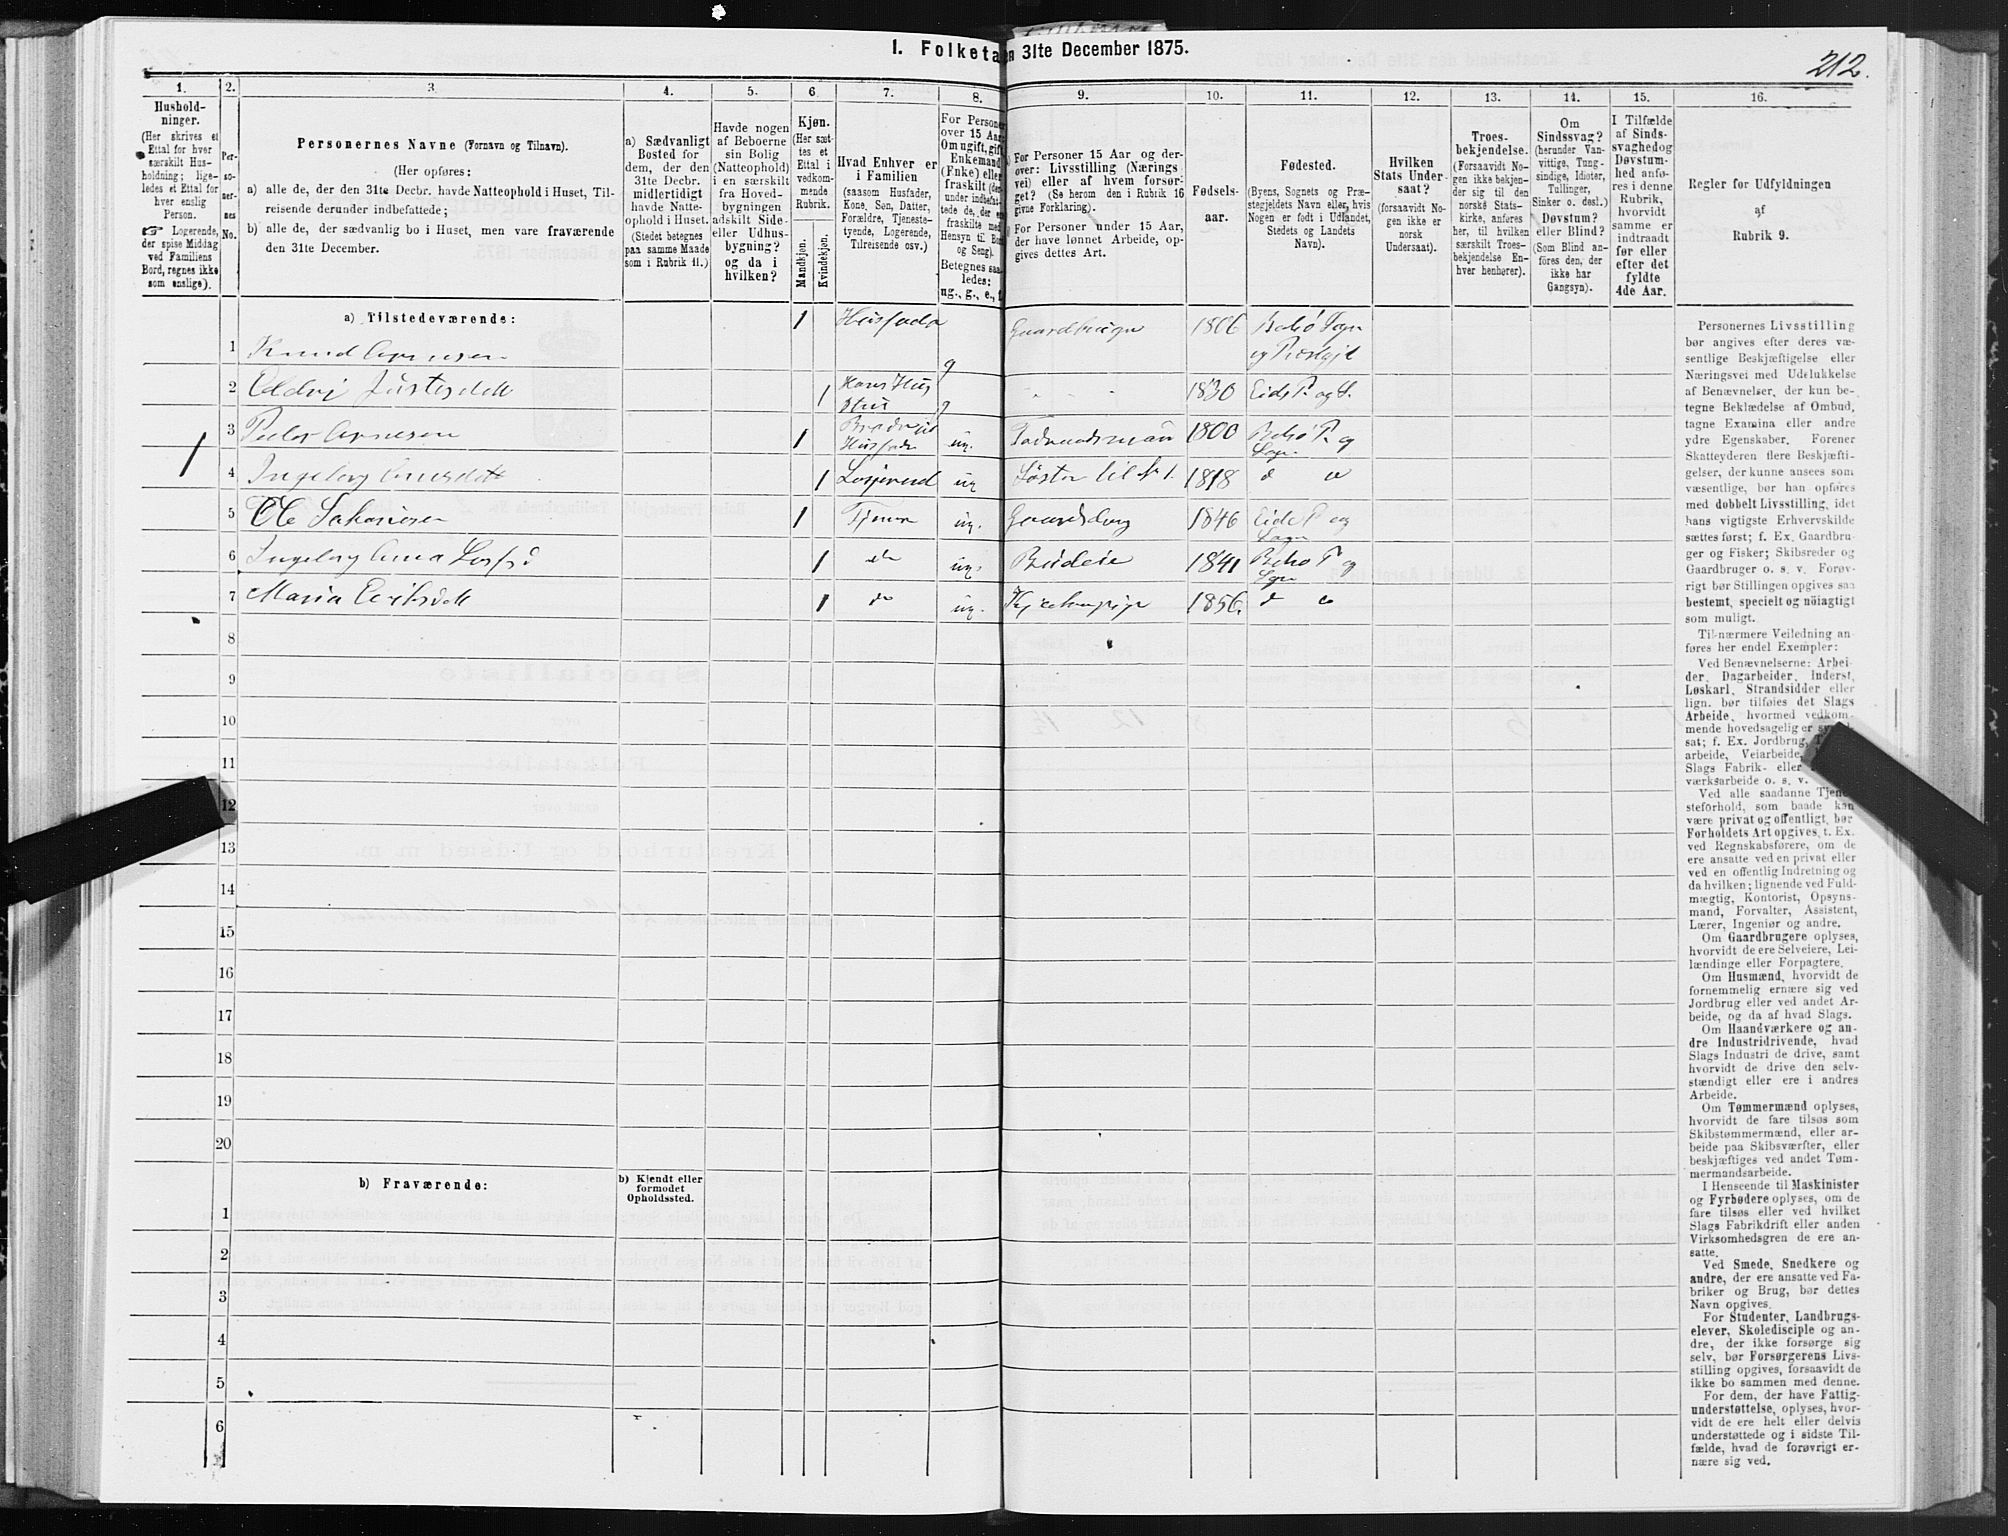 1. Folketa
en 31te December 1875.
212.
1. 2. 3. 4. 5. 6. 7. 8. 9. 10. 11. 12. 13. 14. 15. 16.
Hushold-
ninger.
(Her skrives et
Ettal for hver
særskilt Hus-
holdning; lige-
ledes et Ettal for
hver enslig
Person.
☞ Logerende,
der spise Middag
ved Familiens
Bord, regnes ikke
som enslige).
Per-
so-
ner-
nes
No.
Personernes Navne (Fornavn og Tilnavn).
(Her opføres:
a) alle de, der den 31te Decbr. havde Natteophold i Huset, Til-
reisende derunder indbefattede;
b) alle de, der sædvanlig bo i Huset, men vare fraværende
den 31te December.
a) Sædvanligt
Bosted for
dem, der den
31te Decbr.
midlertidigt
havde Natte-
ophold i Huset.
(Stedet betegnes
paa samme Maade
som i Rubrik 11.)
Havde nogen
af Beboerne
sin Bolig
(Natteophold)
i en særskilt
fra Hoved-
bygningen
adskilt Side-
eller Udhus-
bygning?
og da i
hvilken?
Kjøn.
(Her sæt-
tes et
Ettal i
vedkom-
mende
Rubrik.
Mandkjøn.
Kvindekjøn.
Hvad Enhver er
i Familien
(saasom Husfader,
Kone, Søn, Datter,
Forældre, Tjeneste-
tyende, Logerende,
Tilreisende osv.)
For Personer
over 15 Aar
Om ugift, gift,
Enkemand
(Enke) eller
fraskilt (der-
under indbefat-
tede de, der er
fraskilte med
Hensyn til Bord
og Seng).
Betegnes saa-
ledes:
ug., g., e., f.
For Personer 15 Aar og der-
over: Livsstilling (Nærings
vei) eller af hvem forsør-
get? (Se herom den i Rubrik 16
givne Forklaring).
For Personer under 15 Aar,
der have lønnet Arbeide, op-
gives dettes Art.
Fødsels-
aar.
Fødested.
(Byens, Sognets og Præ-
stegjeldets Navn eller, hvis
Nogen er født i Udlandet,
Stedets og Landets
Navn).
Hvilken
Stats Under-
saat?
(forsaavidt No-
gen ikke er
norsk
Undersaat).
Troes-
bekjendelse.
(Forsaavidt No-
gen ikke bekjen-
der sig til den
norske Stats-
kirke, anføres
her, til hvilken
særskilt Troes-
bekjendelse En-
hver henhører).
Om
Sindssvag?
(herunder Van-
vittige, Tung-
sindige, Idioter,
Tullinger,
Sinker o. desl.)
Døvstum?
eller Blind?
(Som Blind an-
føres den, der
ikke har
Gangsyn).
I Tilfælde
af Sinds-
svaghedog
Døvstum-
hed anfø-
res i denne
Rubrik,
hvorvidt
samme er
indtraadt
før eller
efter det
fyldte
4de Aar.
Regler for Udfyldningen
af
Rubrik 9.
a) Tilstedeværende:
1 Knud 1 Husfader g 1806 og
2 1 g 1830 Eids P. og S.
3 Peder 1 ug. 1800 P. og Sogn
1
4 Ingeborg 1 Losjerend ug Søster til 1. 1818 d o
5 Ole 1 Tjener ug. 1846 Eids P og Sogn
6 Ingeborg Anna 1 do ug. Budeie 1841 P og Sogn
7 Maria 1 do ug. 1856. d o
8
9
10
11
12
13
14
15
16
17
18
19
20
b) Fraværende:
b) Kjendt eller
formodet
Opholdssted.
1
2
3
4
5
6
Personernes Livsstilling
bør angives efter deres væ-
sentlige Beskjæftigelse eller
Næringsvei med Udelukkelse
af Benævnelser, der kun be-
tegne Beklædelse af Ombud,
tagne Examina eller andre
ydre Egenskaber. Forener
Skatteyderen flere Beskjæfti-
gelser, der kunne ansees som
væsentlige, bør han opføres
med dobbelt Livsstilling, idet
hans vigtigste Erhvervskilde
sættes først; f. Ex. Gaardbru-
ger og Fisker; Skibsreder og
Gaardbruger o. s. v. Forøv-
rigt bør Stillingen opgives saa
bestemt, specielt og nöiagtigt
som muligt.
Til nærmere Veiledning an-
føres her endel Exempler:
Ved Benævnelserne: Arbei-
der, Dagarbeider, Inderst,
Løskarl, Strandsidder eller
lign. bør tilføies det Slags
Arbeide, hvormed vedkom-
mende hovedsagelig er
sat; f. Ex. Jordbrug,
arbeide, Veiarbeide,
Slags Fabrik- eller
værksarbeide o. s. v.
Ved alle saadanne Tjene-
steforhold, som baade kan
være privat og offentligt, bør
Forholdets Art opgives, t. Ex.
ved Regnskabsførere, om de
ere ansatte ved en privat eller
ved en offentlig Indretning og
da hvilken; lignende ved Fuld-
mægtig, Kontorist, Opsyns-
mand, Forvalter, Assistent,
Lærer, Ingeniør og andre.
Om Gaardbrugere oplyses,
hvorvidt de ere Selveiere, Lei-
lændinge eller Forpagtere.
Om Husmænd, hvorvidt de
fornemmelig ernære sig ved
Jordbrug eller ved andet Ar-
beide, og da af hvad Slags.
Om Haandværkere og an-
dre Industridrivende, hvad
Slags Industri de drive, samt
hvorvidt de drive den selv-
stændigt eller ere i andres
Arbeide.
Om Tømmermænd oplyses,
hvorvidt de fare tilsøs som
Skibstømmermænd, eller ar-
beide paa Skibsværfter, eller
beskjæftiges ved andet Tøm-
mermandsarbeide.
I Henseende til Maskinister
og Fyrbødere oplyses, om de
fare tilsøs eller ved hvilket
Slags Fabrikdrift eller anden
Virksomhedsgren de ere an-
satte.
Ved Smede, Snedkere og
andre, der ere ansatte ved Fa-
briker og Brug, bør dettes
Navn opgives.
For Studenter, Landbrugs-
elever, Skoledisciple og an-
dre, der ikke forsørge sig
selv, bør Forsørgerens Livs-
stilling opgives, forsaavidt de
ikke bo sammen med denne.
For dem, der have Fattig-
understøttelse, oplyses, hvor-
vidt de ere helt eller delvis
understøttede og i sidste Til-
fælde, hvad de forøvrigt er-
nære sig ved.